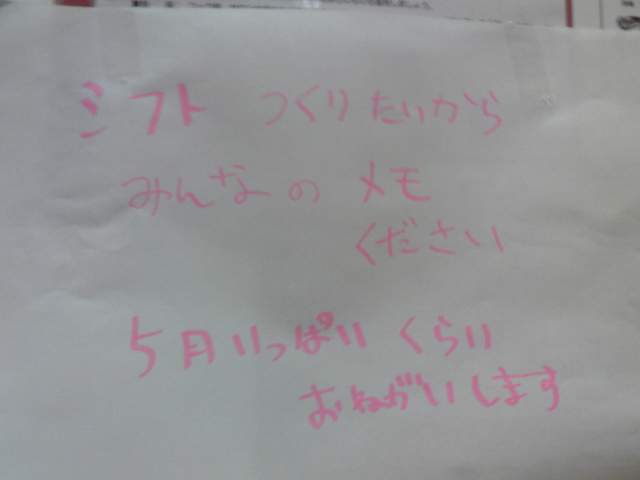 シフト つくりたいから
みんなの メモ
ください
5月いっぱい くらい
おねがいします